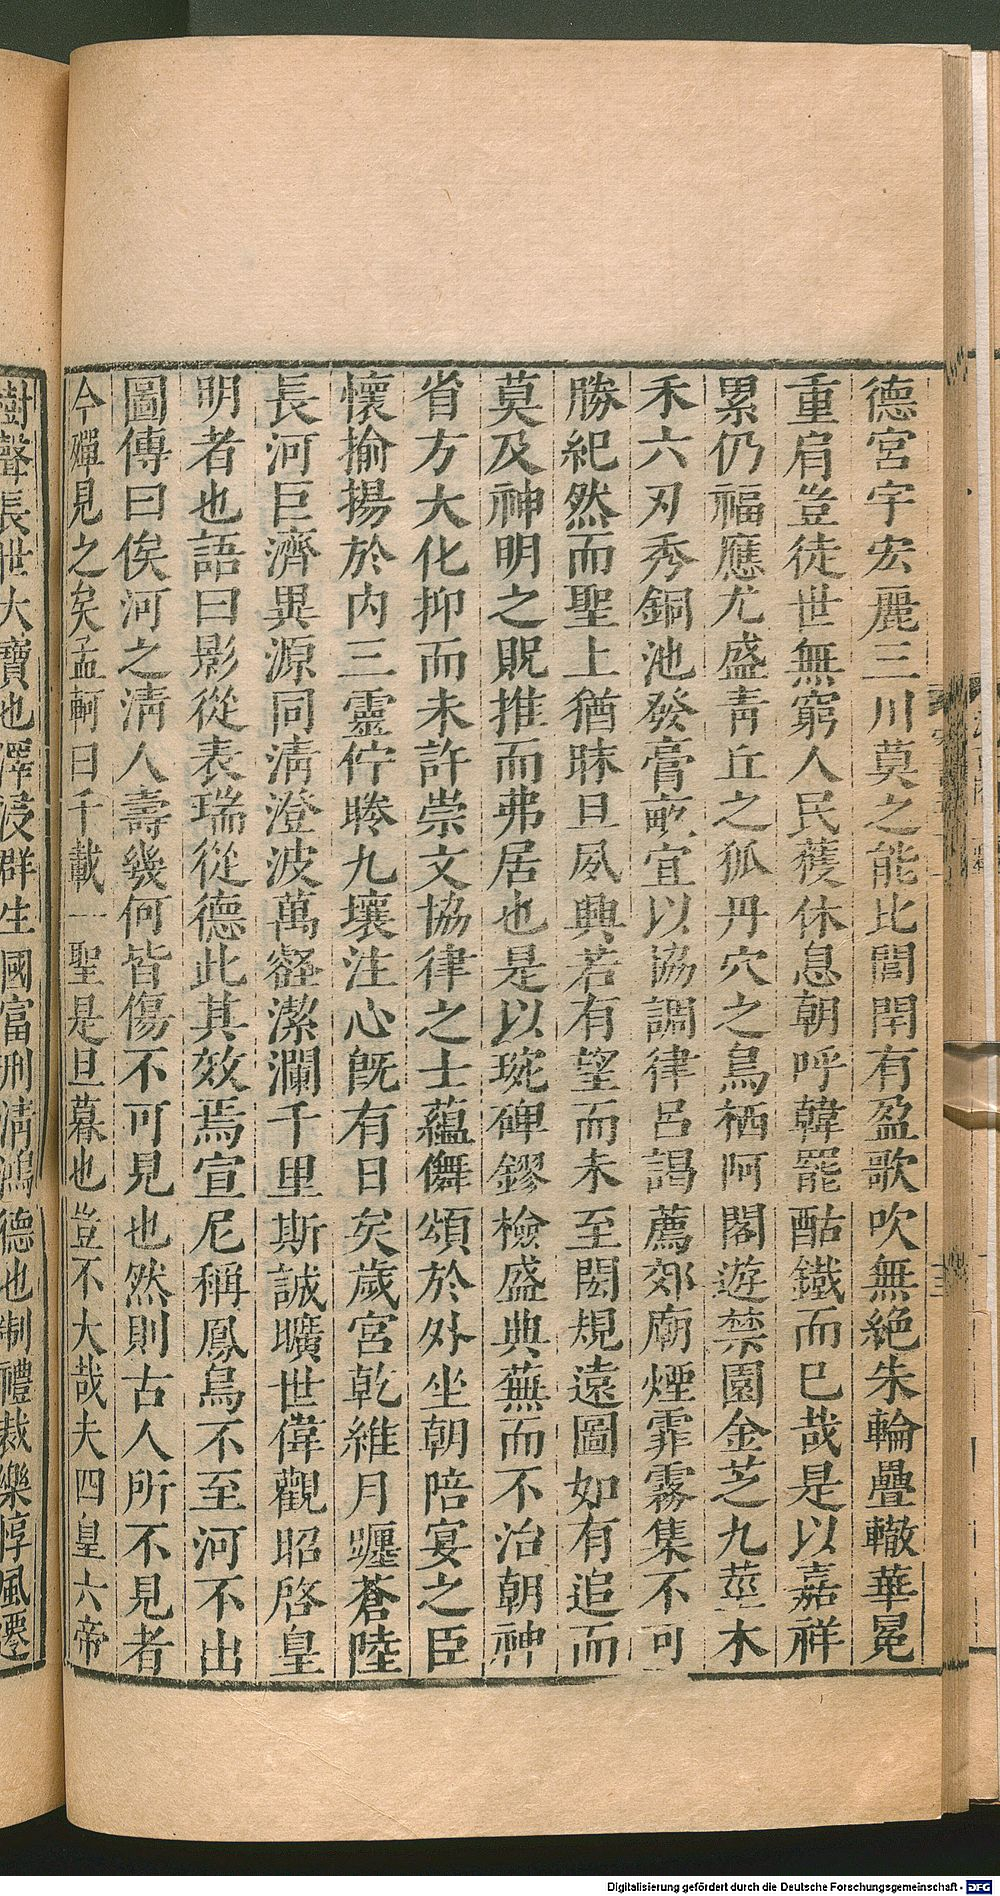 德宮宇宏麗三川莫之能比閭閈有盈歌吹無絶朱輪疊轍華冕
重肩豈徒世無窮人民蕿休息朝呼韓罷酤鐵而已哉是以嘉祥
累仍福應尤盛靑丘之狐丹穴之鳥栖阿閣遊禁園金芝九莖木
禾六刃秀銅池發膏畝宜以協調律呂謁薦郊廟煙霏霧集不可
勝紀然而聖上猶昧旦夙興若有望而未至閎規遠圖如有追而
莫及神明之貺推而弗居也是以琬碑鏐檢盛典蕪而不治朝神
省方大化抑而未許崇文協律之士蘊儛頌於外坐朝陪宴之臣
懷揄揚於內三靈佇睠九壤注心旣有日矣歲宮乾維月躔蒼陸
長河巨濟異源同淸澄波萬壑潔瀾千里斯誠曠世偉觀昭啓皇
明者也語曰影從表瑞從德此其效焉宣尼稱鳳鳥不至河不出
圖傳曰俟河之淸人壽幾何皆傷不可見也然則古人所不見者
今殫見之矣孟軻曰千載一聖是旦暮也豈不大哉夫四皇六帝
樹聲長世大寶也澤浸群生國富刑淸鴻德也制禮裁樂惇風遷
Digitalisierung gefördert durch die Deutsche Forschungsgemeinschaft - DFG